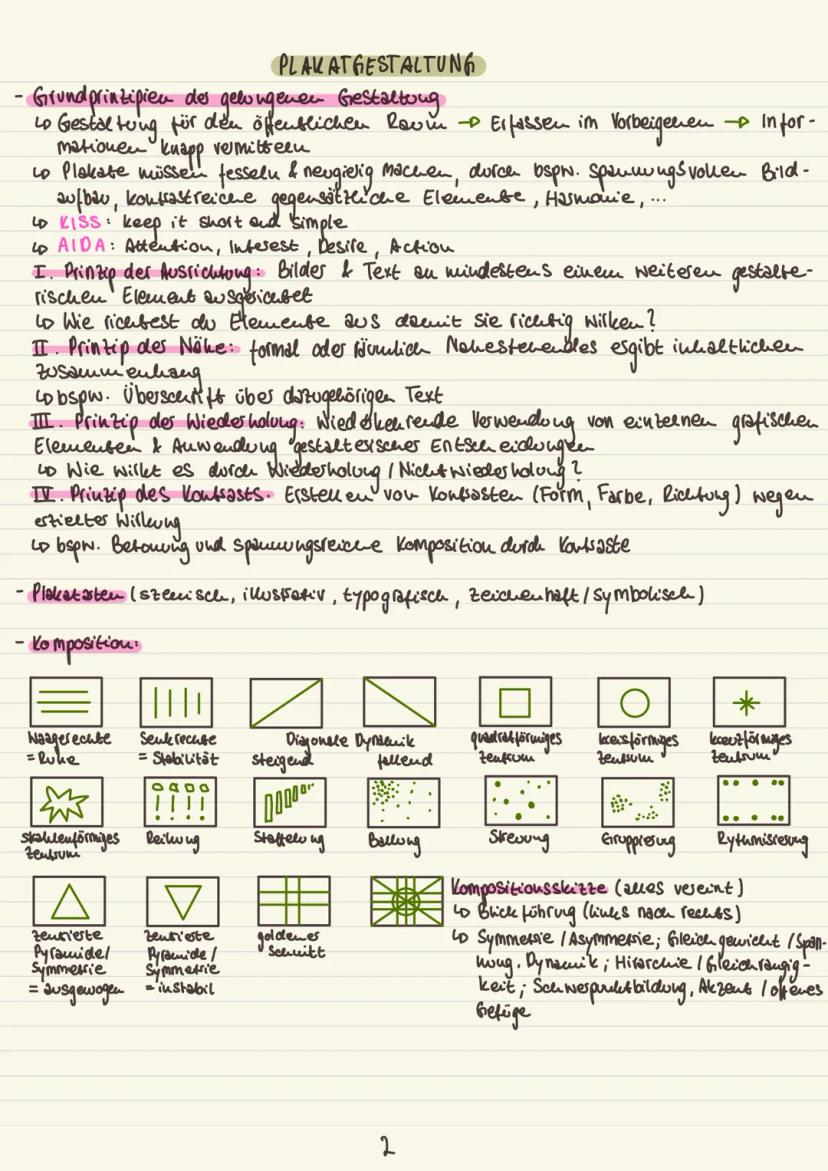 PLAKATGESTALTUNG
- Grundprinzipien der gelungenen Gestaltung
↳ Gestaltung für den öffentlichen Raum → Erfassen im Vorbeigehen → Infor-
mationen knapp vermitteln
↳ Plakate müssen fesseln & neugierig machen, durch bspw. spannungsvollen Bild-
aufbau, kontrastreiche gegensätzliche Elemente, Harmonie, ...
↳ KISS: keep it short and simple
↳ AIDA: Attention, Interest, Desire, Action
I. Prinzip der Ausrichtung: Bilder & Text an mindestens einem weiteren gestalte-
rischen Element ausgerichtet
↳ Wie richtest du Elemente aus damit sie richtig wirken?
II. Prinzip der Nähe: formal oder räumlich Nahestehendes ergibt inhaltlichen
Zusammenhang
↳ bspw. Überschrift über dazugehörigen Text
III. Prinzip der Wiederholung: Wiederkehrende Verwendung von einzelnen grafischen
Elementen & Anwendung gestalterischer Entscheidungen
↳ Wie wirkt es durch Wiederholung / Nichtwiederholung?
IV. Prinzip des Kontrasts: Erstellen von Kontrasten (Form, Farbe, Richtung) wegen
erzielter Wirkung
↳ bspw. Betonung und spannungsreiche Komposition durch Kontraste
- Plakatarten (szenisch, illustrativ, typografisch, zeichenhaft/symbolisch)
- Komposition:
Waagerechte
= Ruhe
Senkrechte
= Stabilität
Diagonale Dynamik
steigend fallend
quadratförmiges
Zentrum
kreisförmiges
Zentrum
kreuzförmiges
Zentrum
strahlenförmiges
Zentrum
Reihung
Staffelung
Ballung
Streuung
Gruppierung
Rythmisierung
zentrierte
Pyramide/
Symmetrie
= ausgewogen
zentrierte
Pyramide/
Symmetrie
= instabil
goldener
Schnitt
Kompositionsskizze (alles vereint)
↳ Blickführung (links nach rechts)
↳ Symmetrie/Asymmetrie; Gleichgewicht/Span-
nung, Dynamik; Hirarchie/Gleichrangig-
keit; Schwerpunktbildung, Akzent/offenes
Gefüge
2